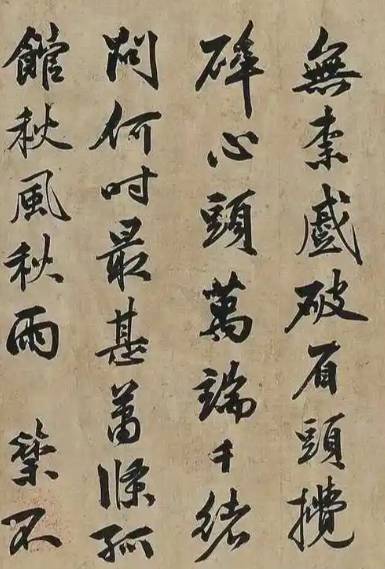 無柰慼破眉頭攪
碎心頭萬端千緒
問何时最甚蕭條孤
館秋風秋雨 不